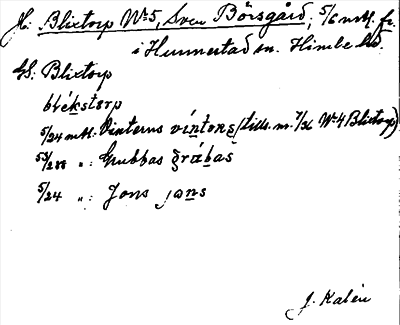 H. Blixtorp Nº 5, Sven Börsgård, 5/6 mtl. fr.
i Hunnestad sn. Himle hd.
GS: Blixtorp
blékstorp
5/24 mtl: Vinterns víntons (tills. m. 7/36 Nº 4 Blixtorp)
53/288 „ : Grubbas grábas
5/24 „ : Jons jons
J. Kalén